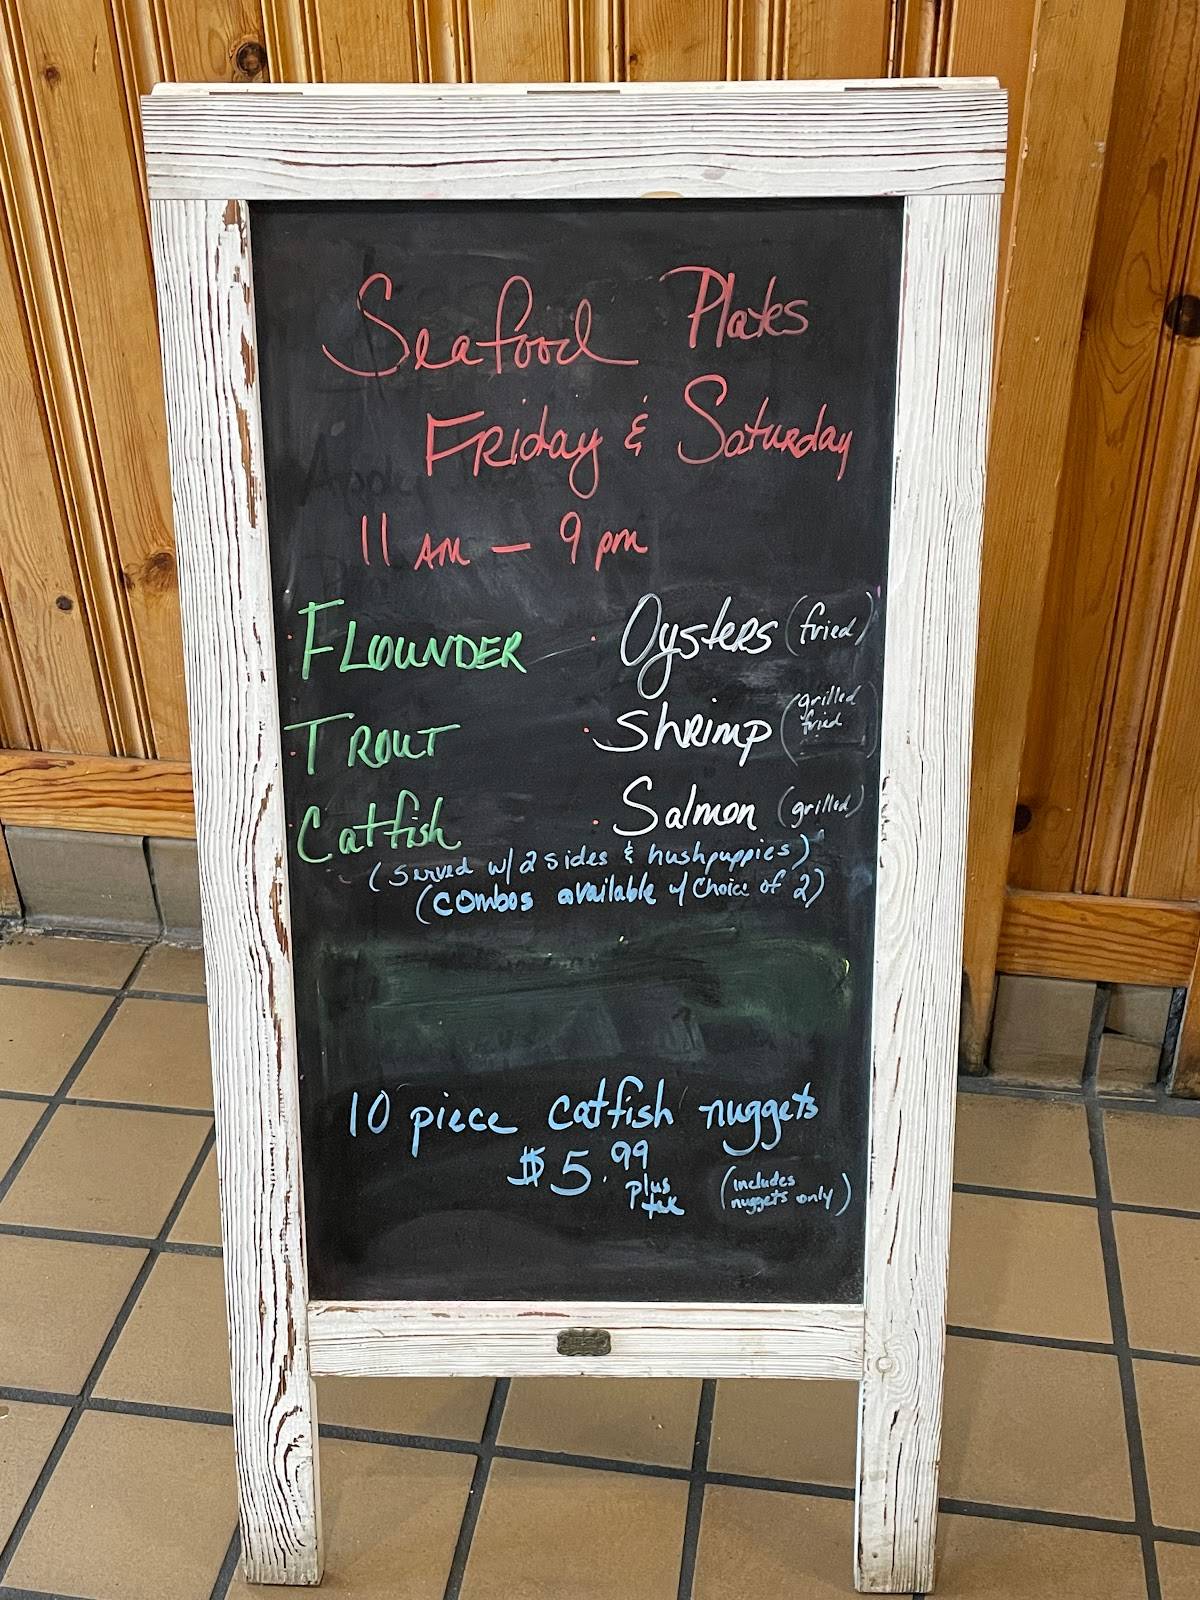 Seafood Plates
Friday & Saturday
11 AM – 9 pm
FLOUNDER
TROUT
Catfish
Oysters (fried)
Shrimp (grilled
fried)
Salmon (grilled)
(Served w/ 2 sides & hushpuppies)
(combos available w/ Choice of 2)
10 piece catfish nuggets
$5.99
plus
tax
(includes
nuggets only)